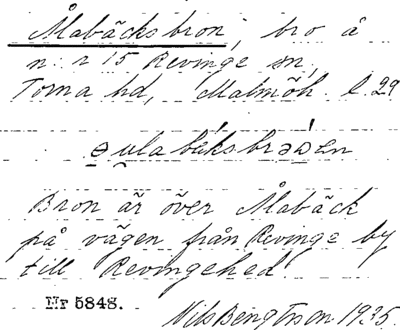 Åabäcksbron, bro å
n:r 15 Revinge sn,
Torna hd, Malmöh. l. 29
Bron är över Åabäck
på vägen från Revinge by
till Revingehed
Nr 5848.
Nils Bengtson 1935.